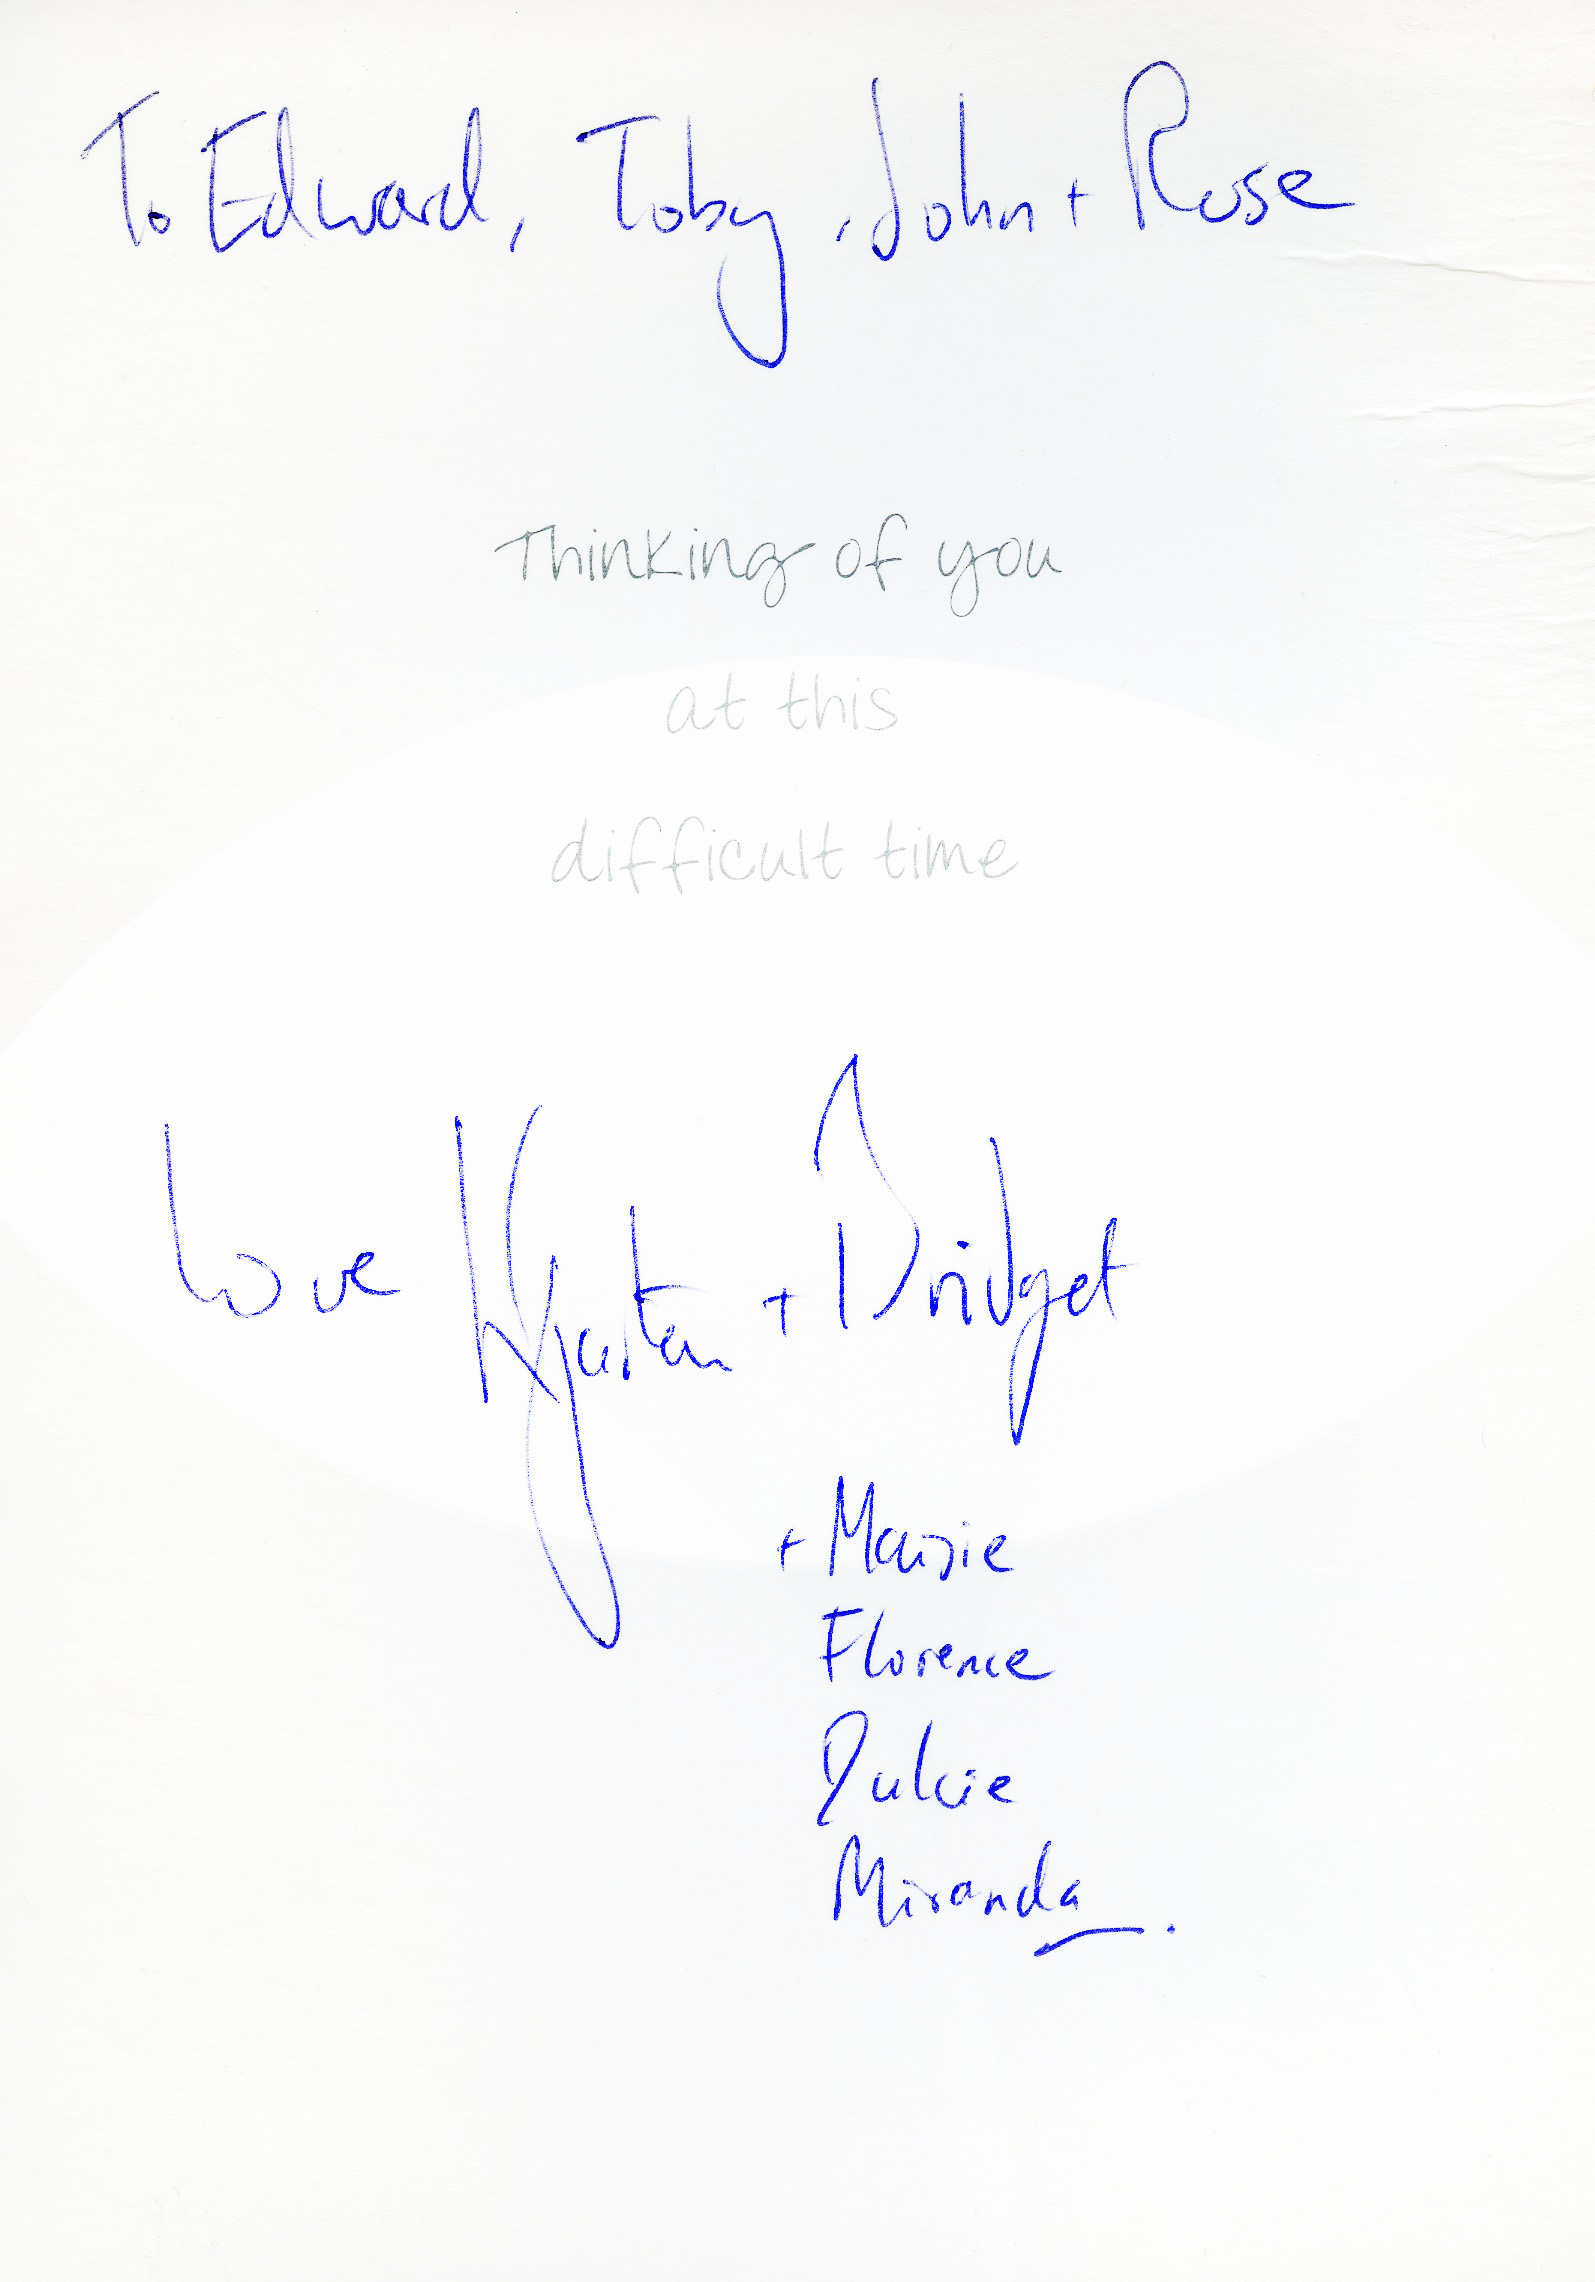 To Edward, Toby, John + Rose
Thinking of you
at this
difficult time
Love Kjartan + Bridget
+ Maisie
Florence
Dulcie
Miranda.